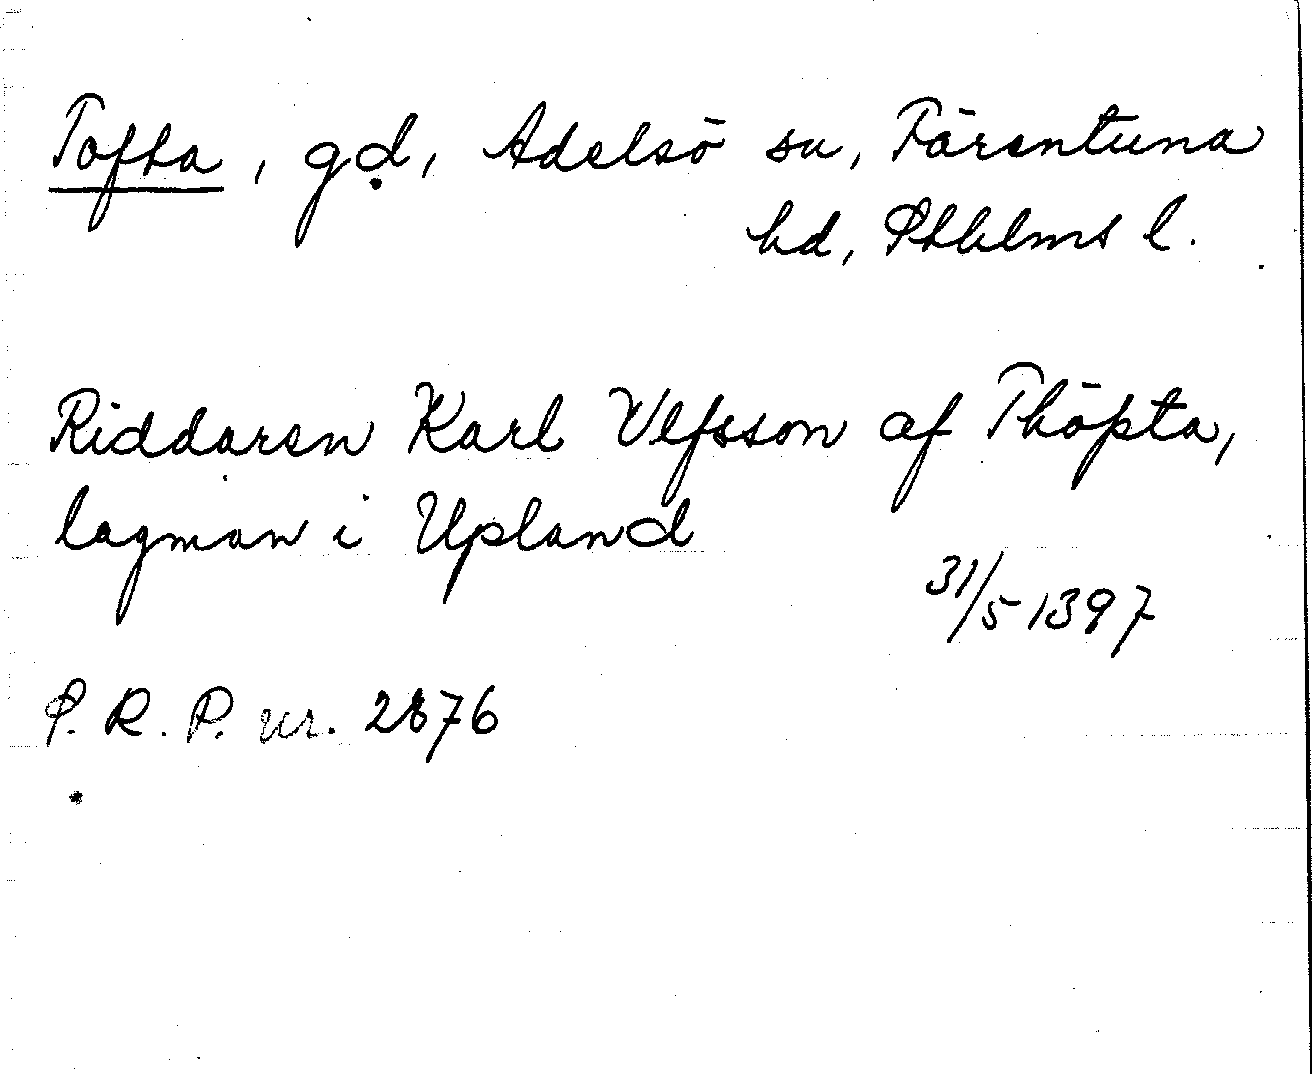 Tofta, gd, Adelsö sn, Färentuna
hd, Sthlms l.
Riddaren Karl Ulfsson af Thöpta,
lagman i Upland
31/5 1397
S. R. P. nr. 2876